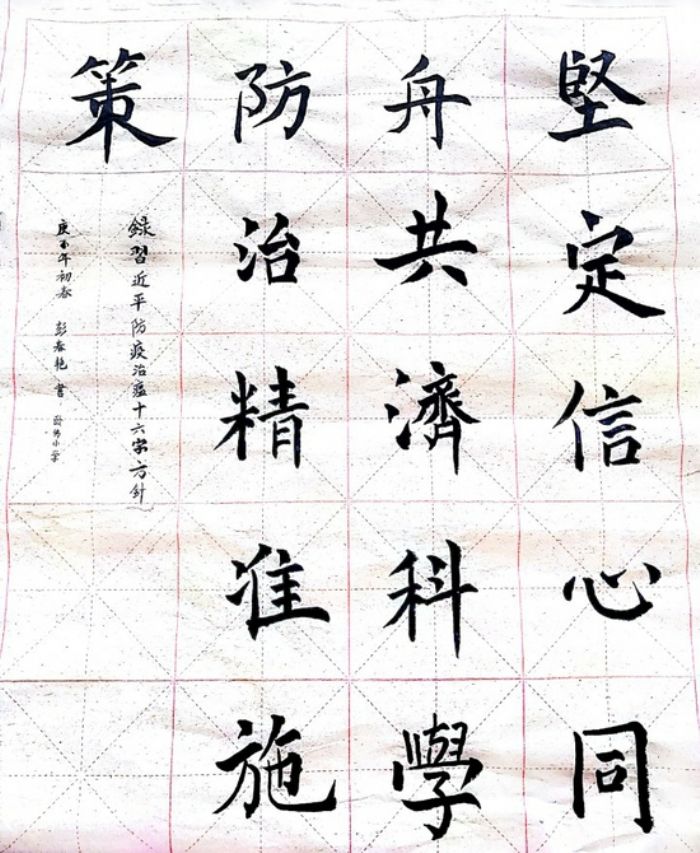 堅定信心同
舟共濟科學
防治精准施
策
録習近平防疫治瘟十六字方針
庚子年初春 彭春艳 書
小学